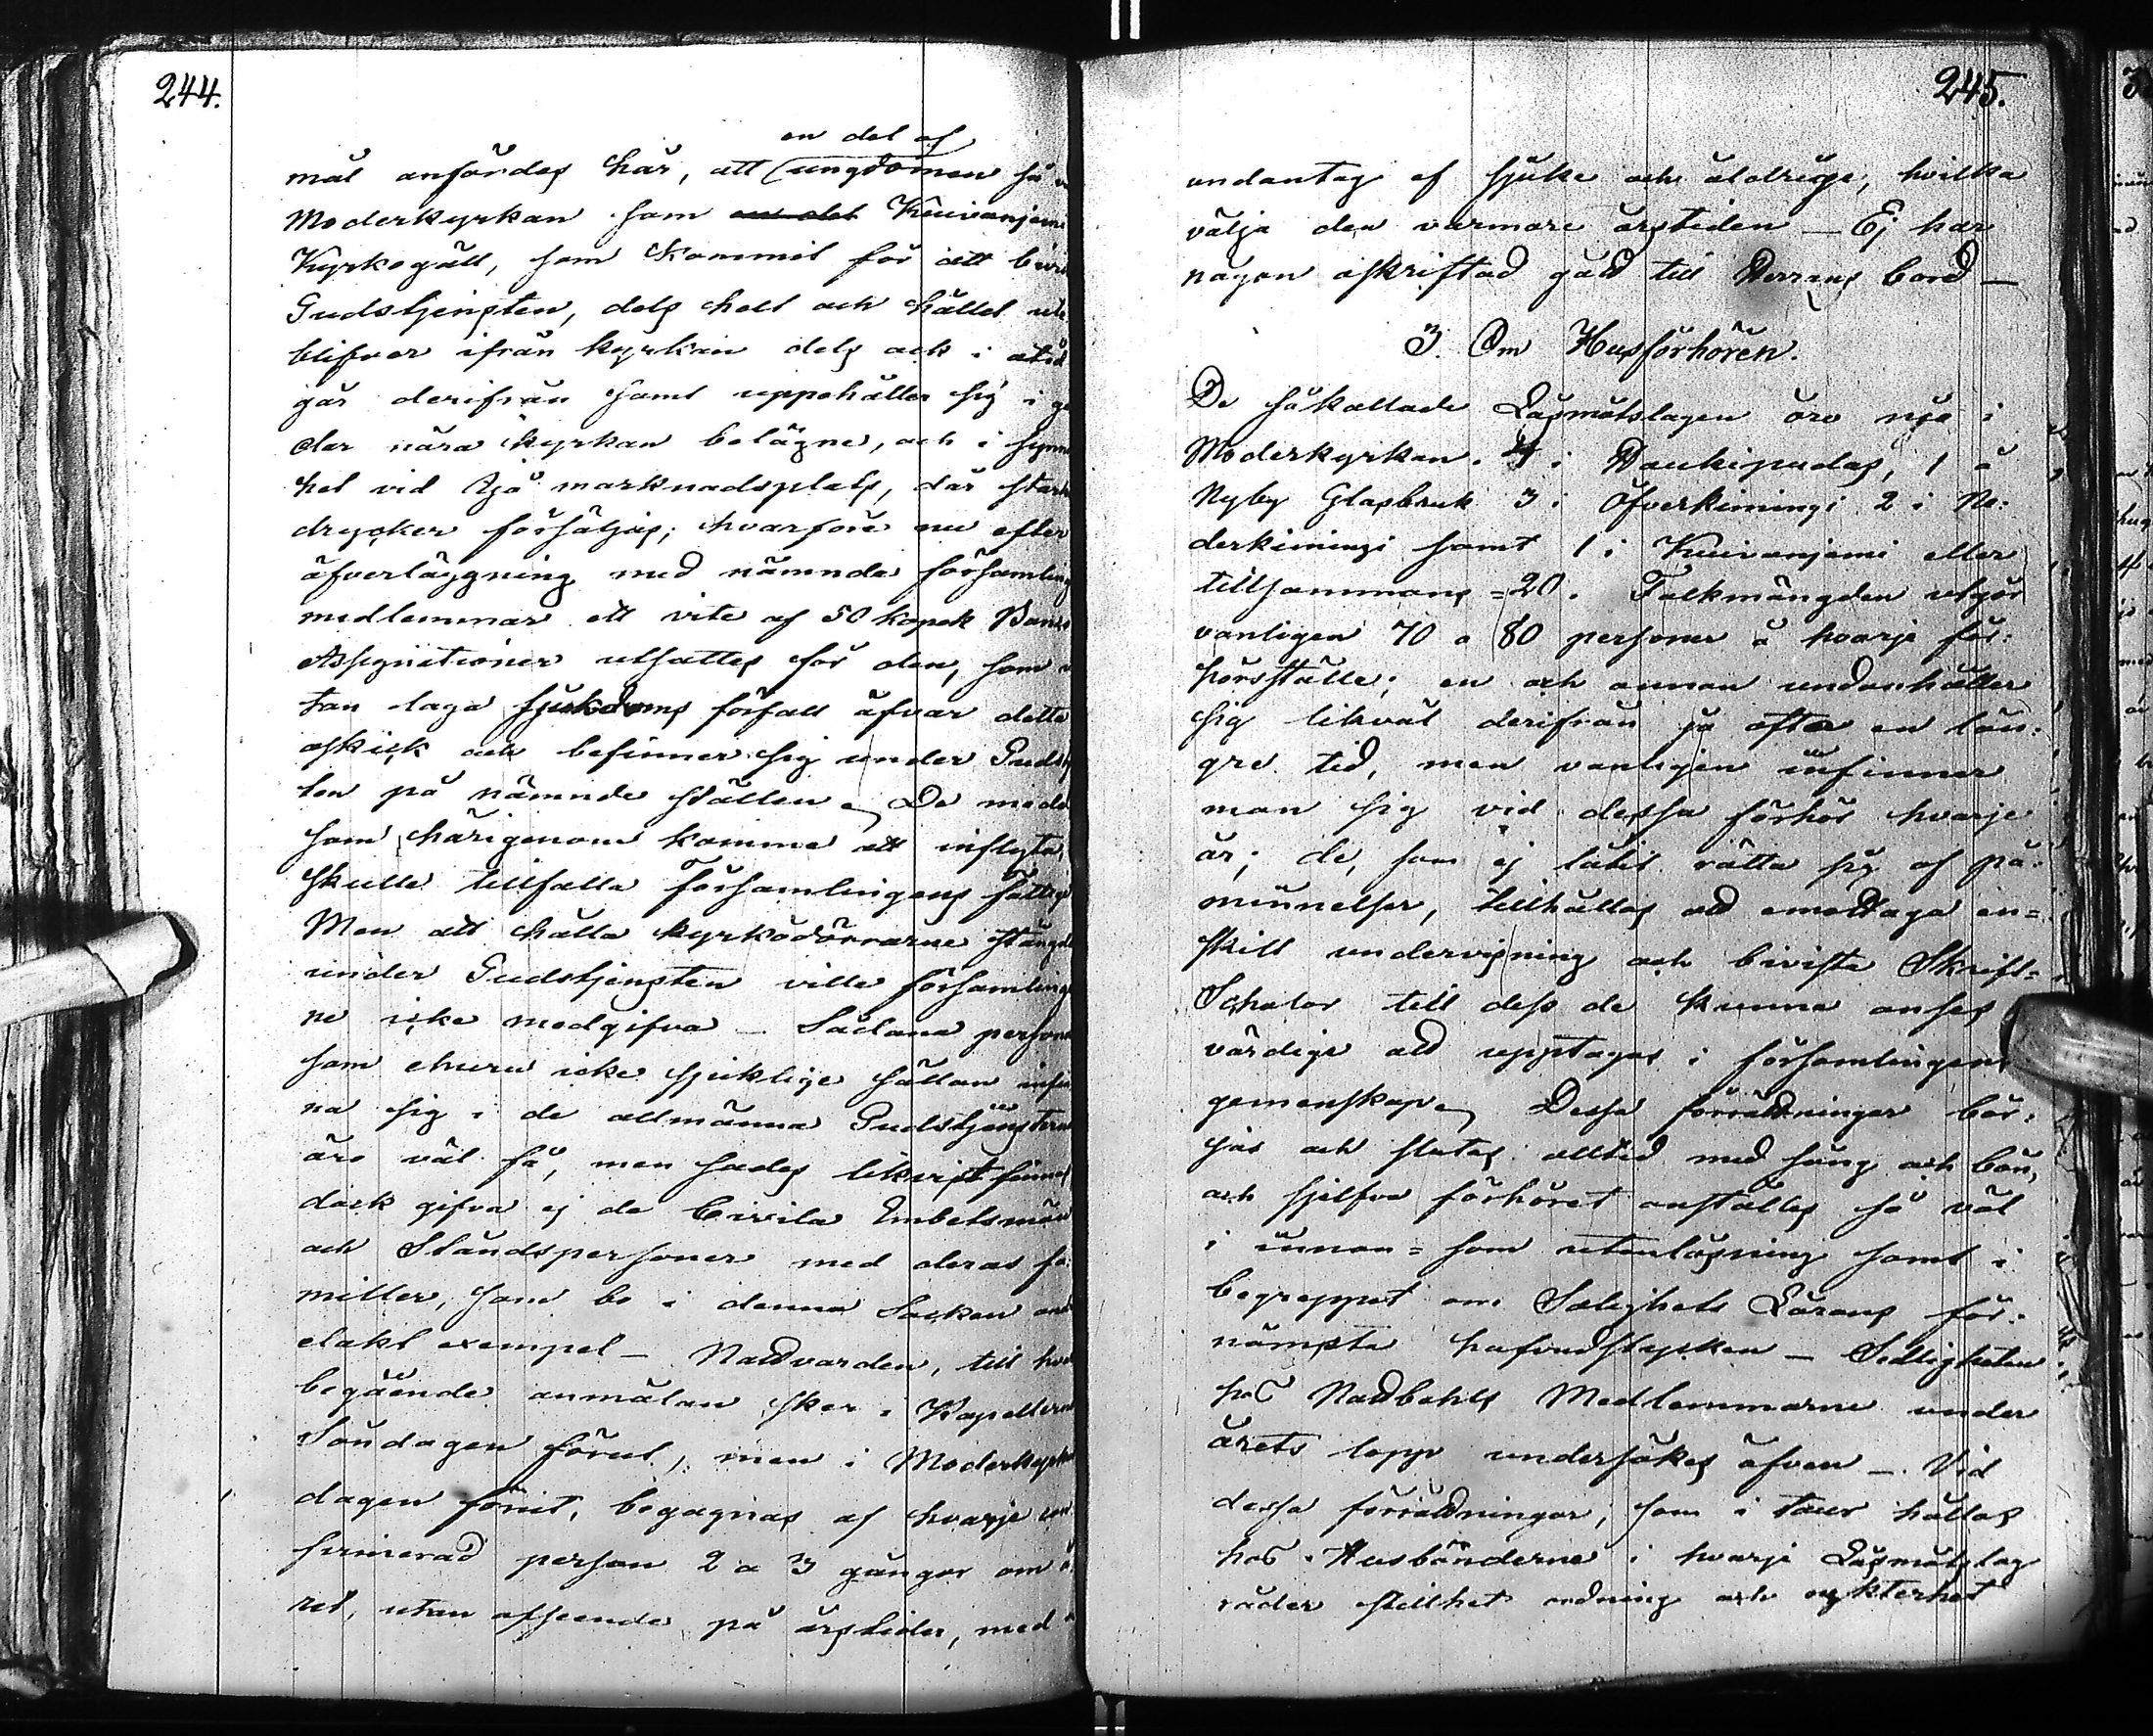 244.
en del af
mål anfördes här, att ungdomen så
Moderkyrkan som en del Kuivanjemi
Kyrkogäll, som kommit för att
Gudstjensten, dels helt och hållet
blifver ifrån kyrkan dels ock i
går derifrån samt uppehåller sig i
der nära kyrkan belägne, och i
het vid Ijå marknadsplats, där
drycker försäljas; hvarföre nu efter
öfverläggning med nämnde
medlemmar ett vite af 50 kopek
Assignationer utsattes för den, som
tan laga sjukdoms förfall öfver
skick och befinner sig under
ten på nämnde ställen. De
som härigenom komma att inflyta,
skulle tillfalla Församlingens
Men att hålla kyrkodörrarne
under Gudstjensten ville
ne icke medgifva – Sådana
som ehuru icke sjuklige sällan
na sig i de allmänna
äro väl få, men
dock gifva ej de Civila
och Ståndspersoner med deras fa-
miller, som bo i denna Socken
elakt exempel – Nattvarden, till
begående anmälan sker i
Söndagen förut, men i
dagen förut, begagnas af hvarje
firmerad person 2 a 3 gånger om
ret, utan afseende på årstider, med
245.
undantag af sjuke och ålderige, hvilka
välja den varmare årstiden – Ej har
någon oskriftad gått till Herrans bord –
3. Om Husförhören.
De såkallade Läsmötslagen äro nio i
Moderkyrkan. 4 i Haukipudas, 1 å
Nyby Glasbruk 3 i Öfverkiimingi 2 i Ne:
derkiimingi samt 1 i Kuivanjemi eller
tillsammans =20. Folkmängden utgör
vanligen 70 a 80 personer å hvarje för:
hörsställe; en och annan undanhåller
sig likväl derifrån på ofta en län:
gre tid, men vanligen infinner
man sig vid dessa förhör hvarje
år; de, som ej låtit rätta sig af på-
minnelser, tillhållas att emottaga en=
skilt undervisning och bivista Skrift=
Scholor till dess de kunna anses
värdige att upptagas i församlingens
gemenskap. Dessa förrättningar bör:
jas och slutas alltid med sång och bön,
och sjelfva förhöret anställes så väl
i innan= som utanläsning samt i
begreppet om Salighets Lärans för:
nämsta hufvudstycken – Sedligheten
hos Medlemmarne under
årets lopp undersökes äfven – Vid
dessa förrättningar, som i tour hållas
hos Husbönderne i hvarje Läsmötslag
råder stillhet ordning och nykterhet